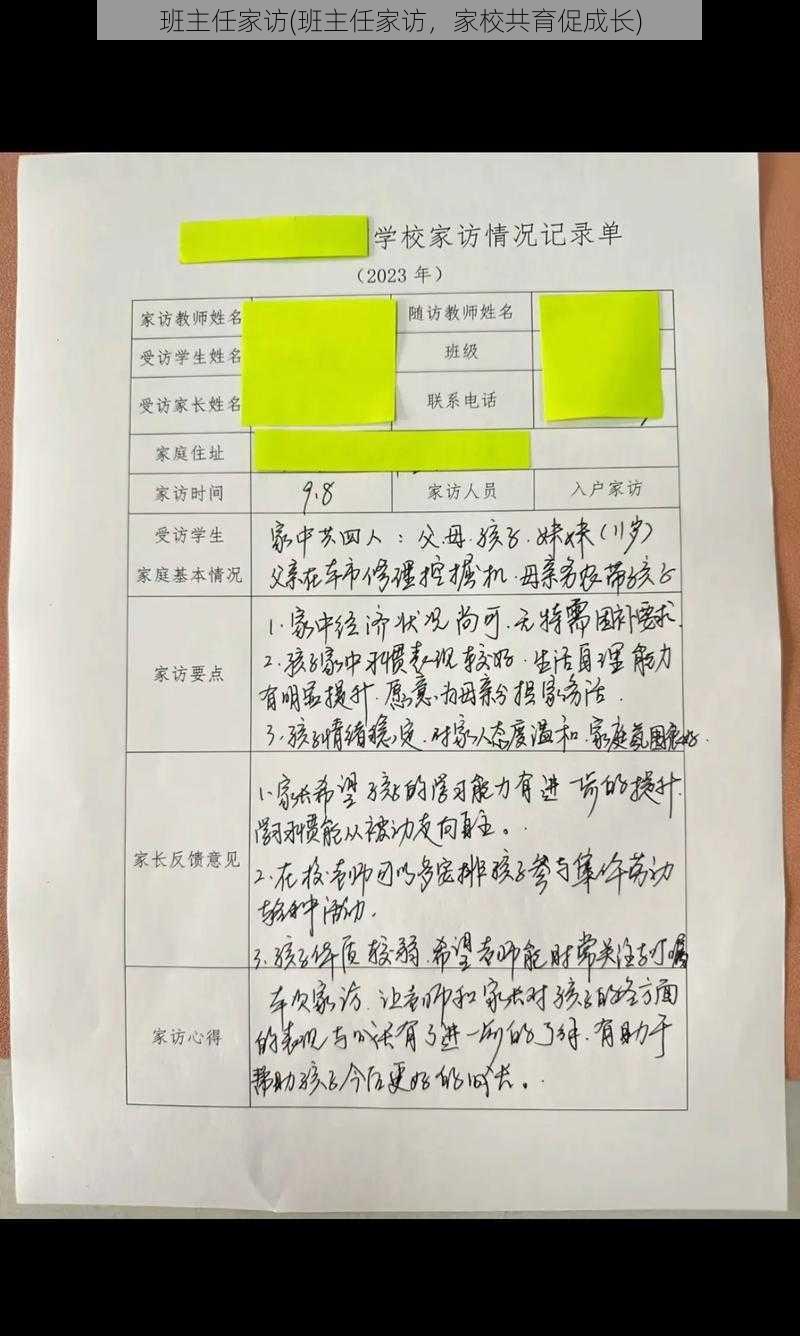 班主任家访(班主任家访，家校共育促成长)
学校家访情况记录单
（2023 年）
家访教师姓名 随访教师姓名
受访学生姓名 班级
受访家长姓名 联系电话
家庭住址
家访时间 9.8 家访人员 入户家访
受访学生
家庭基本情况
家中共四人：父.母.孩子.妹妹（11岁）
父亲在车市修理挖掘机.母亲务农带孩子
家访要点
1.家中经济状况尚可.无特需困补要求.
2.孩子家中习惯表现较好.生活自理能力
有明显提升.愿意为母亲分担家务活.
3.孩子情绪稳定.对家人态度温和.家庭氛围良好.
家长反馈意见
1.家长希望孩子的学习能力有进一步的提升.
学习习惯能从被动走向自主。.
2.在校老师可以多安排孩子参与集体劳动
等种活动.
3.孩子体质较弱.希望老师能时常关注与叮嘱
家访心得
本次家访.让老师和家长对孩子的各方面
的表现与成长有了进一步的了解.有助于
帮助孩子今后更好的成长。.